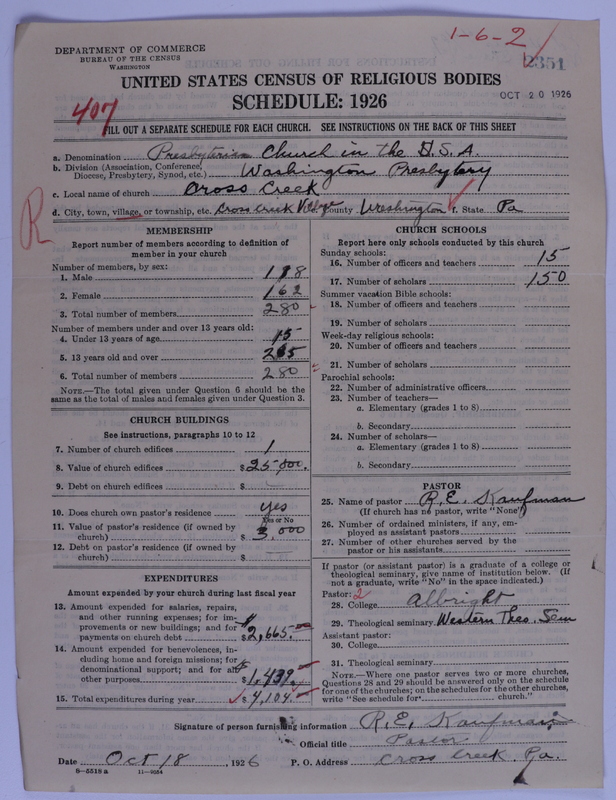 1-6-2
DEPARTMENT OF COMMERCE
BUREAU OF THE CENSUS
WASHINGTON
2351
UNITED STATES CENSUS OF RELIGIOUS BODIES
SCHEDULE: 1926
OCT 20 1926
407
FILL OUT A SEPARATE SCHEDULE FOR EACH CHURCH. SEE INSTRUCTIONS ON THE BACK OF THIS SHEET
a. Denomination Presbyterian Church in the U.S.A.
b. Division (Association, Conference, Diocese, Presbytery, Synod, etc.) Washington Presbytery
c. Local name of church Cross Creek
d. City, town, village, or township, etc. Cross Creek Village County Washington f. State Pa
R
MEMBERSHIP
Report number of members according to definition of
member in your church
Number of members, by sex:
1. Male 118
2. Female 162
3. Total number of members 280
Number of members under and over 13 years old:
4. Under 13 years of age 15
5. 13 years old and over 265
6. Total number of members 280
NOTE.—The total given under Question 6 should be the
same as the total of males and females given under Question 3.
CHURCH BUILDINGS
See instructions, paragraphs 10 to 12
7. Number of church edifices 1
8. Value of church edifices $25,000.
9. Debt on church edifices $
10. Does church own pastor's residence yes
Yes or No
11. Value of pastor's residence (if owned by
church) $ 3,000
12. Debt on pastor's residence (if owned by
church) $
EXPENDITURES
Amount expended by your church during last fiscal year
13. Amount expended for salaries, repairs,
and other running expenses; for im-
provements or new buildings; and for
payments on church debt $2,665.
14. Amount expended for benevolences, in-
cluding home and foreign missions; for
denominational support; and for all
other purposes $1,439.
15. Total expenditures during year $4,104.
CHURCH SCHOOLS
Report here only schools conducted by this church
Sunday schools:
16. Number of officers and teachers 15
17. Number of scholars 150
Summer vacation Bible schools:
18. Number of officers and teachers
19. Number of scholars
Week-day religious schools:
20. Number of officers and teachers
21. Number of scholars
Parochial schools:
22. Number of administrative officers
23. Number of teachers—
a. Elementary (grades 1 to 8)
b. Secondary
24. Number of scholars—
a. Elementary (grades 1 to 8)
b. Secondary
PASTOR
25. Name of pastor R. E. Kaufman
(If church has no pastor, write "None")
26. Number of ordained ministers, if any, em-
ployed as assistant pastors
27. Number of other churches served by the
pastor or his assistants
If pastor (or assistant pastor) is a graduate of a college or
theological seminary, give name of institution below. (If
not a graduate, write "No" in the space indicated.)
Pastor: 2
28. College Albright
29. Theological seminary Western Theo. Sem
Assistant pastor:
30. College
31. Theological seminary
NOTE.—Where one pastor serves two or more churches,
Questions 28 and 29 should be answered only on the schedule
for one of the churches; on the schedules for the other churches,
write "See schedule for church."
Signature of person furnishing information R. E. Kaufman
Official title Pastor
Date Oct 18, 1926 P. O. Address Cross Creek. Pa.
8—5518a 11—9084